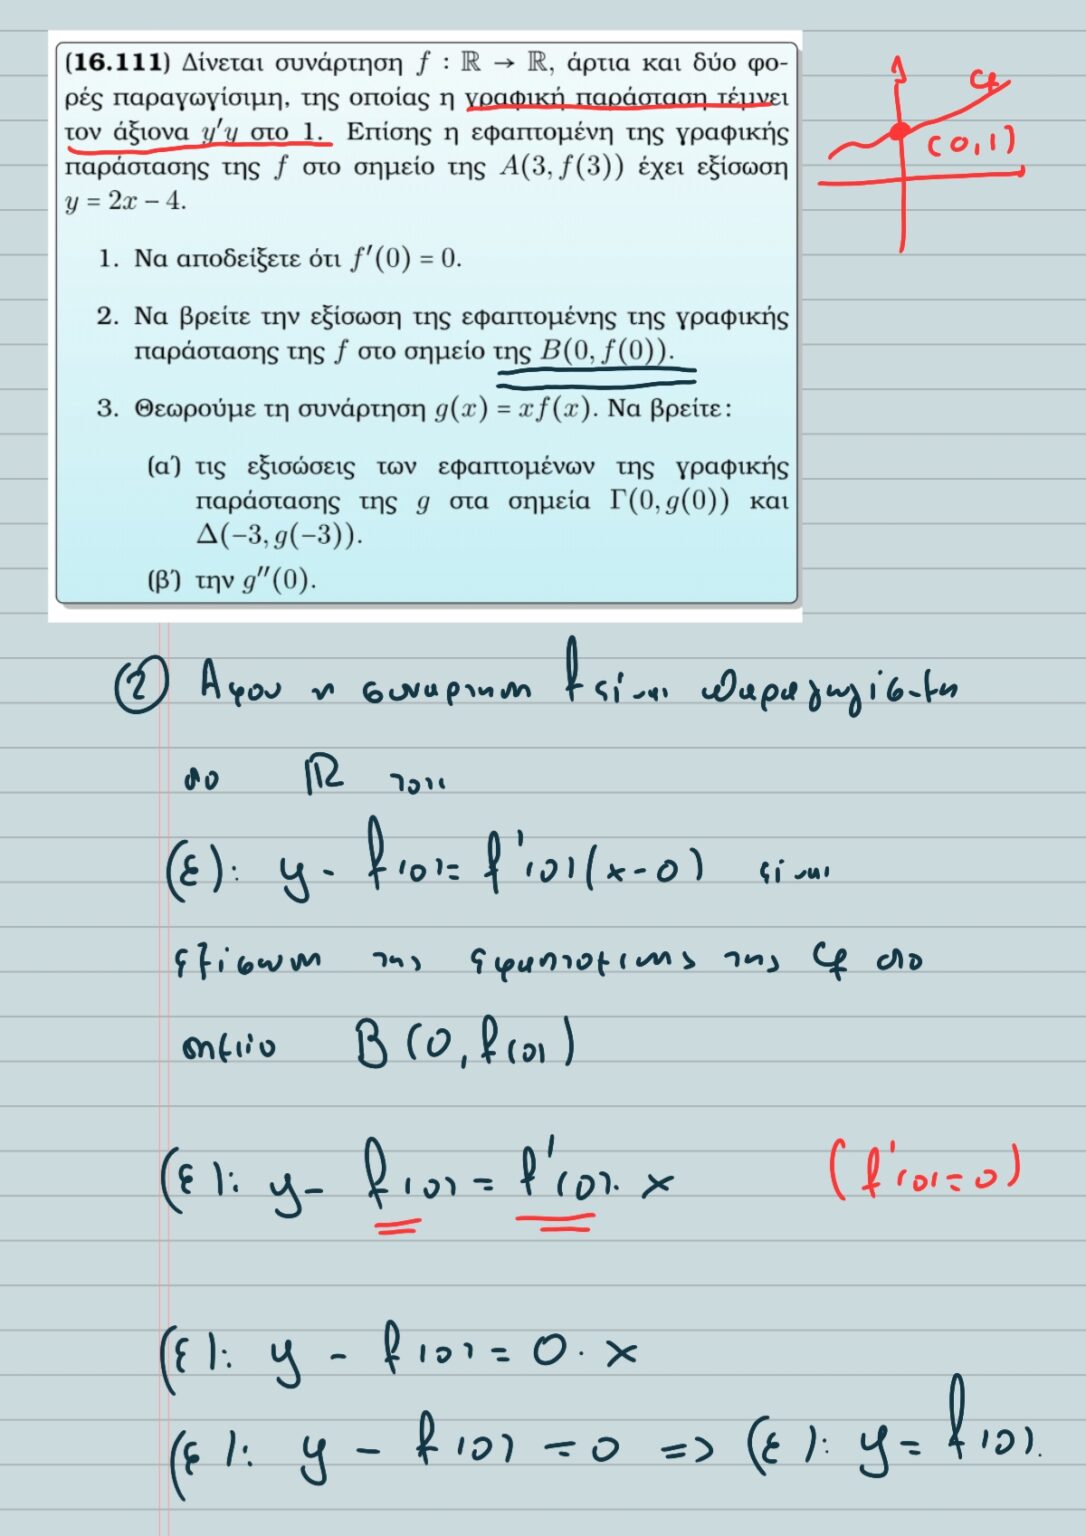 (16.111) Δίνεται συνάρτηση f : ℝ → ℝ, άρτια και δύο φο-
ρές παραγωγίσιμη, της οποίας η γραφική παράσταση τέμνει
τον άξιονα y′y στο 1. Επίσης η εφαπτομένη της γραφικής
παράστασης της f στο σημείο της A(3, f(3)) έχει εξίσωση
y = 2x – 4.
1. Να αποδείξετε ότι f′(0) = 0.
2. Να βρείτε την εξίσωση της εφαπτομένης της γραφικής
παράστασης της f στο σημείο της B(0, f(0)).
3. Θεωρούμε τη συνάρτηση g(x) = xf(x). Να βρείτε:
(α΄) τις εξισώσεις των εφαπτομένων της γραφικής
παράστασης της g στα σημεία Γ(0, g(0)) και
Δ(−3, g(−3)).
(β΄) την g″(0).
Cf
(0,1)
② Αφου η συναρτηση f είναι παραγωγίσιμη
στο ℝ τοτε
(ε): y - f(0) = f'(0)(x-0) είναι
εξίσωση της εφαπτομενης της Cf στο
σημείο B(0, f(0))
(ε): y - f(0) = f'(0)·x (f'(0)=0)
(ε): y - f(0) = 0·x
(ε): y - f(0) = 0 => (ε): y = f(0).